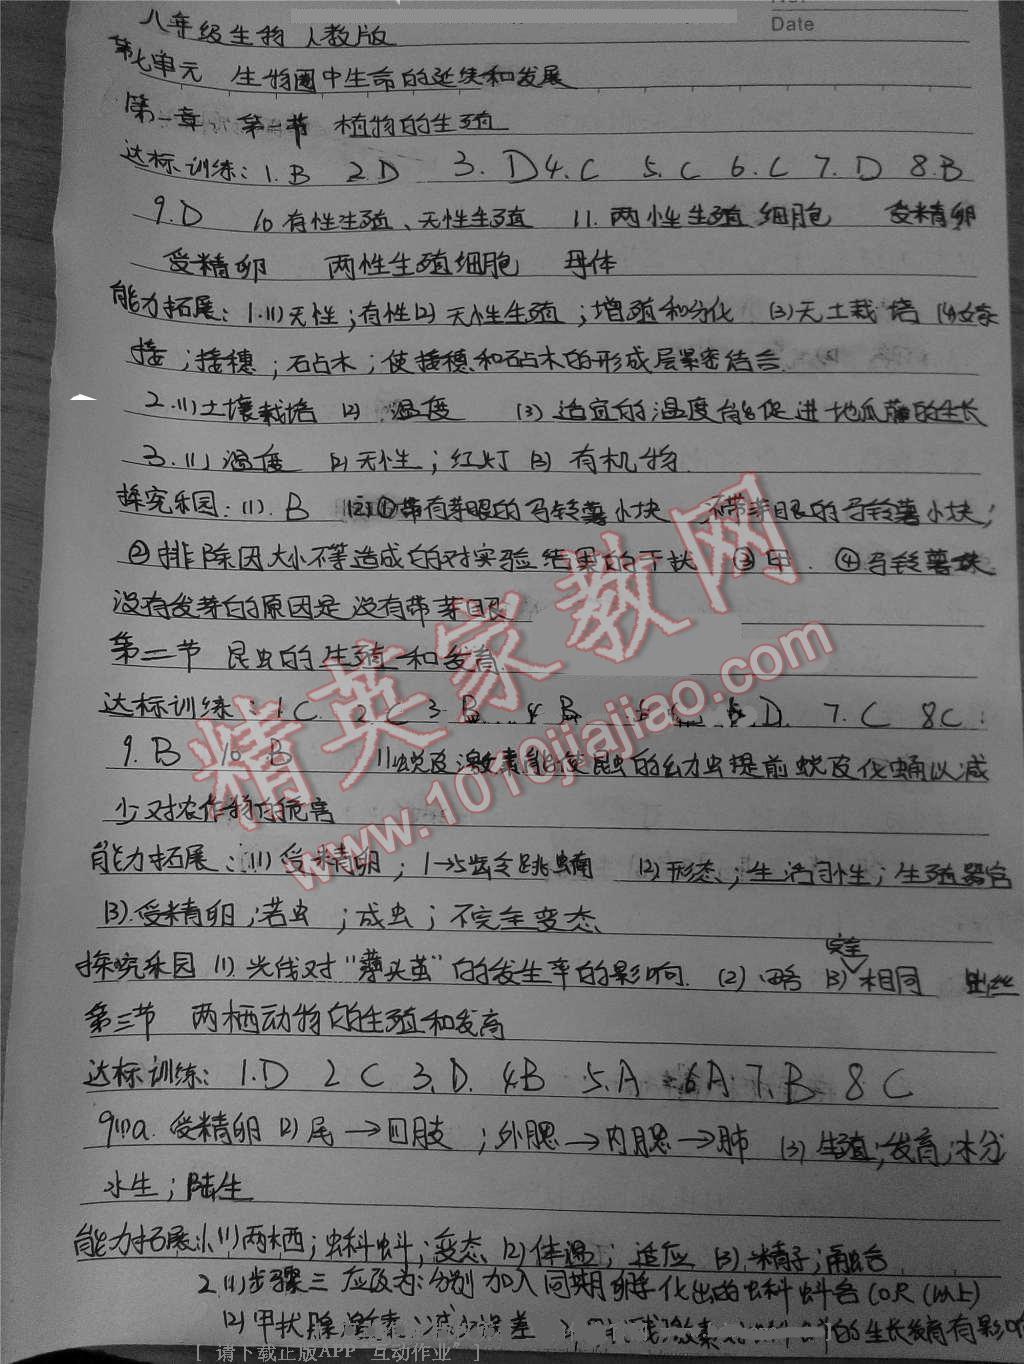 Date
八年级生物 人教版
第七单元 生物圈中生命的延续和发展
第一章 第一节 植物的生殖
达标训练:1.B 2.D 3.D 4.C 5.C 6.C 7.D 8.B
9.D 10 有性生殖、无性生殖 11.两性生殖细胞 受精卵
受精卵 两性生殖细胞 母体
能力拓展:1.(1)无性;有性(2)无性生殖;增殖和分化 (3)无土栽培 (4)嫁
接;接穗;砧木;使接穗和砧木的形成层紧密结合
2.(1)土壤栽培 (2)温度 (3)适宜的温度能促进地瓜的生长
3.(1)温度 (2)无性;红灯 (3)有机物
探究乐园:(1).B (2)①带有芽眼的马铃薯小块 不带芽眼的马铃薯小块;
②排除因大小不等造成的对实验结果的干扰 ③甲. ④马铃薯块
没有发芽的原因是没有带芽眼
第二节 昆虫的生殖和发育
达标训练:1C 2C 3.B 4 B 5.C 6.D. 7.C 8C
9.B 10 B 11蜕皮激素能使昆虫的幼虫提前蜕皮化蛹以减
少对农作物的危害
能力拓展:(1)受精卵;1→5龄跳蝻 (2)形态;生活习性;生殖器官
(3).受精卵;若虫;成虫;不完全变态
探究乐园 (1).光线对“薄头茧”的发生率的影响. (2)略 (3)完全相同 出丝
第三节 两栖动物的生殖和发育
达标训练:1.D 2 C 3.D. 4B 5.A 6A 7.B 8 C
9(1)a.受精卵 (2)尾→四肢;外腮→内腮→肺 (3)生殖;发育;水分
水生;陆生
能力拓展:1.(1)两栖;蝌蚪;变态 (2)体温;适应 (3)精子;融合
2.(1)步骤三 应改为:分别加入同期孵化出的蝌蚪各10只(以上)
(2)甲状腺激素 减少误差
精英家教网
www.1010jiajiao.com
[请下载正版APP“互动作业”]